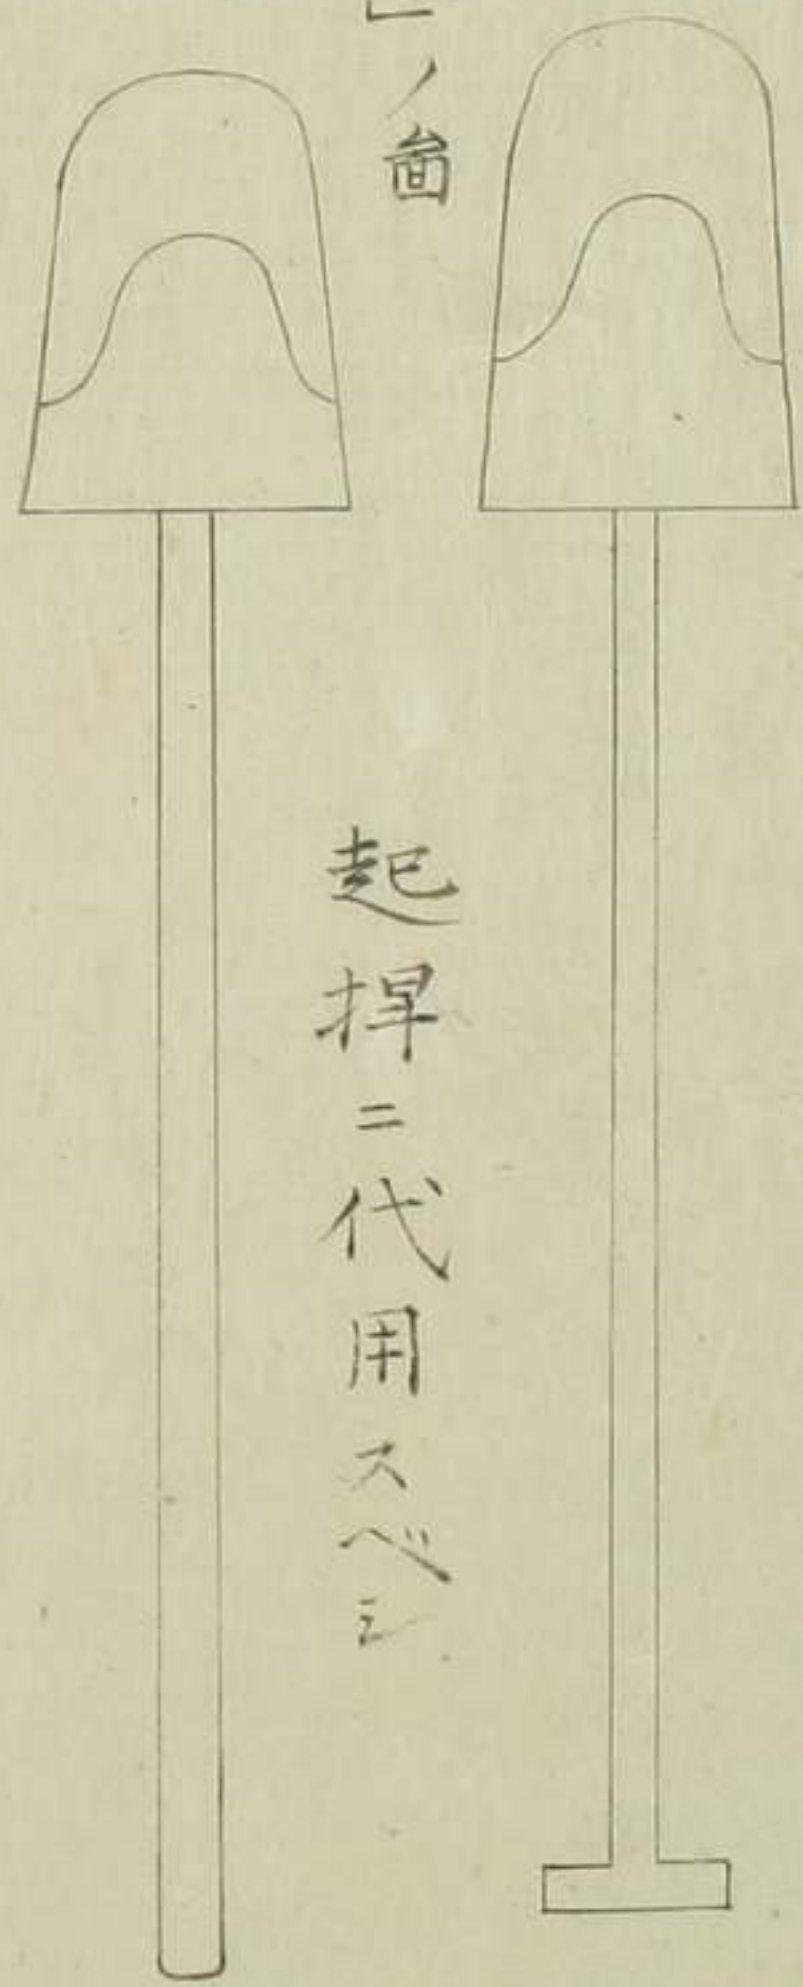 」ノ啚
起捍ニ代用スベシ